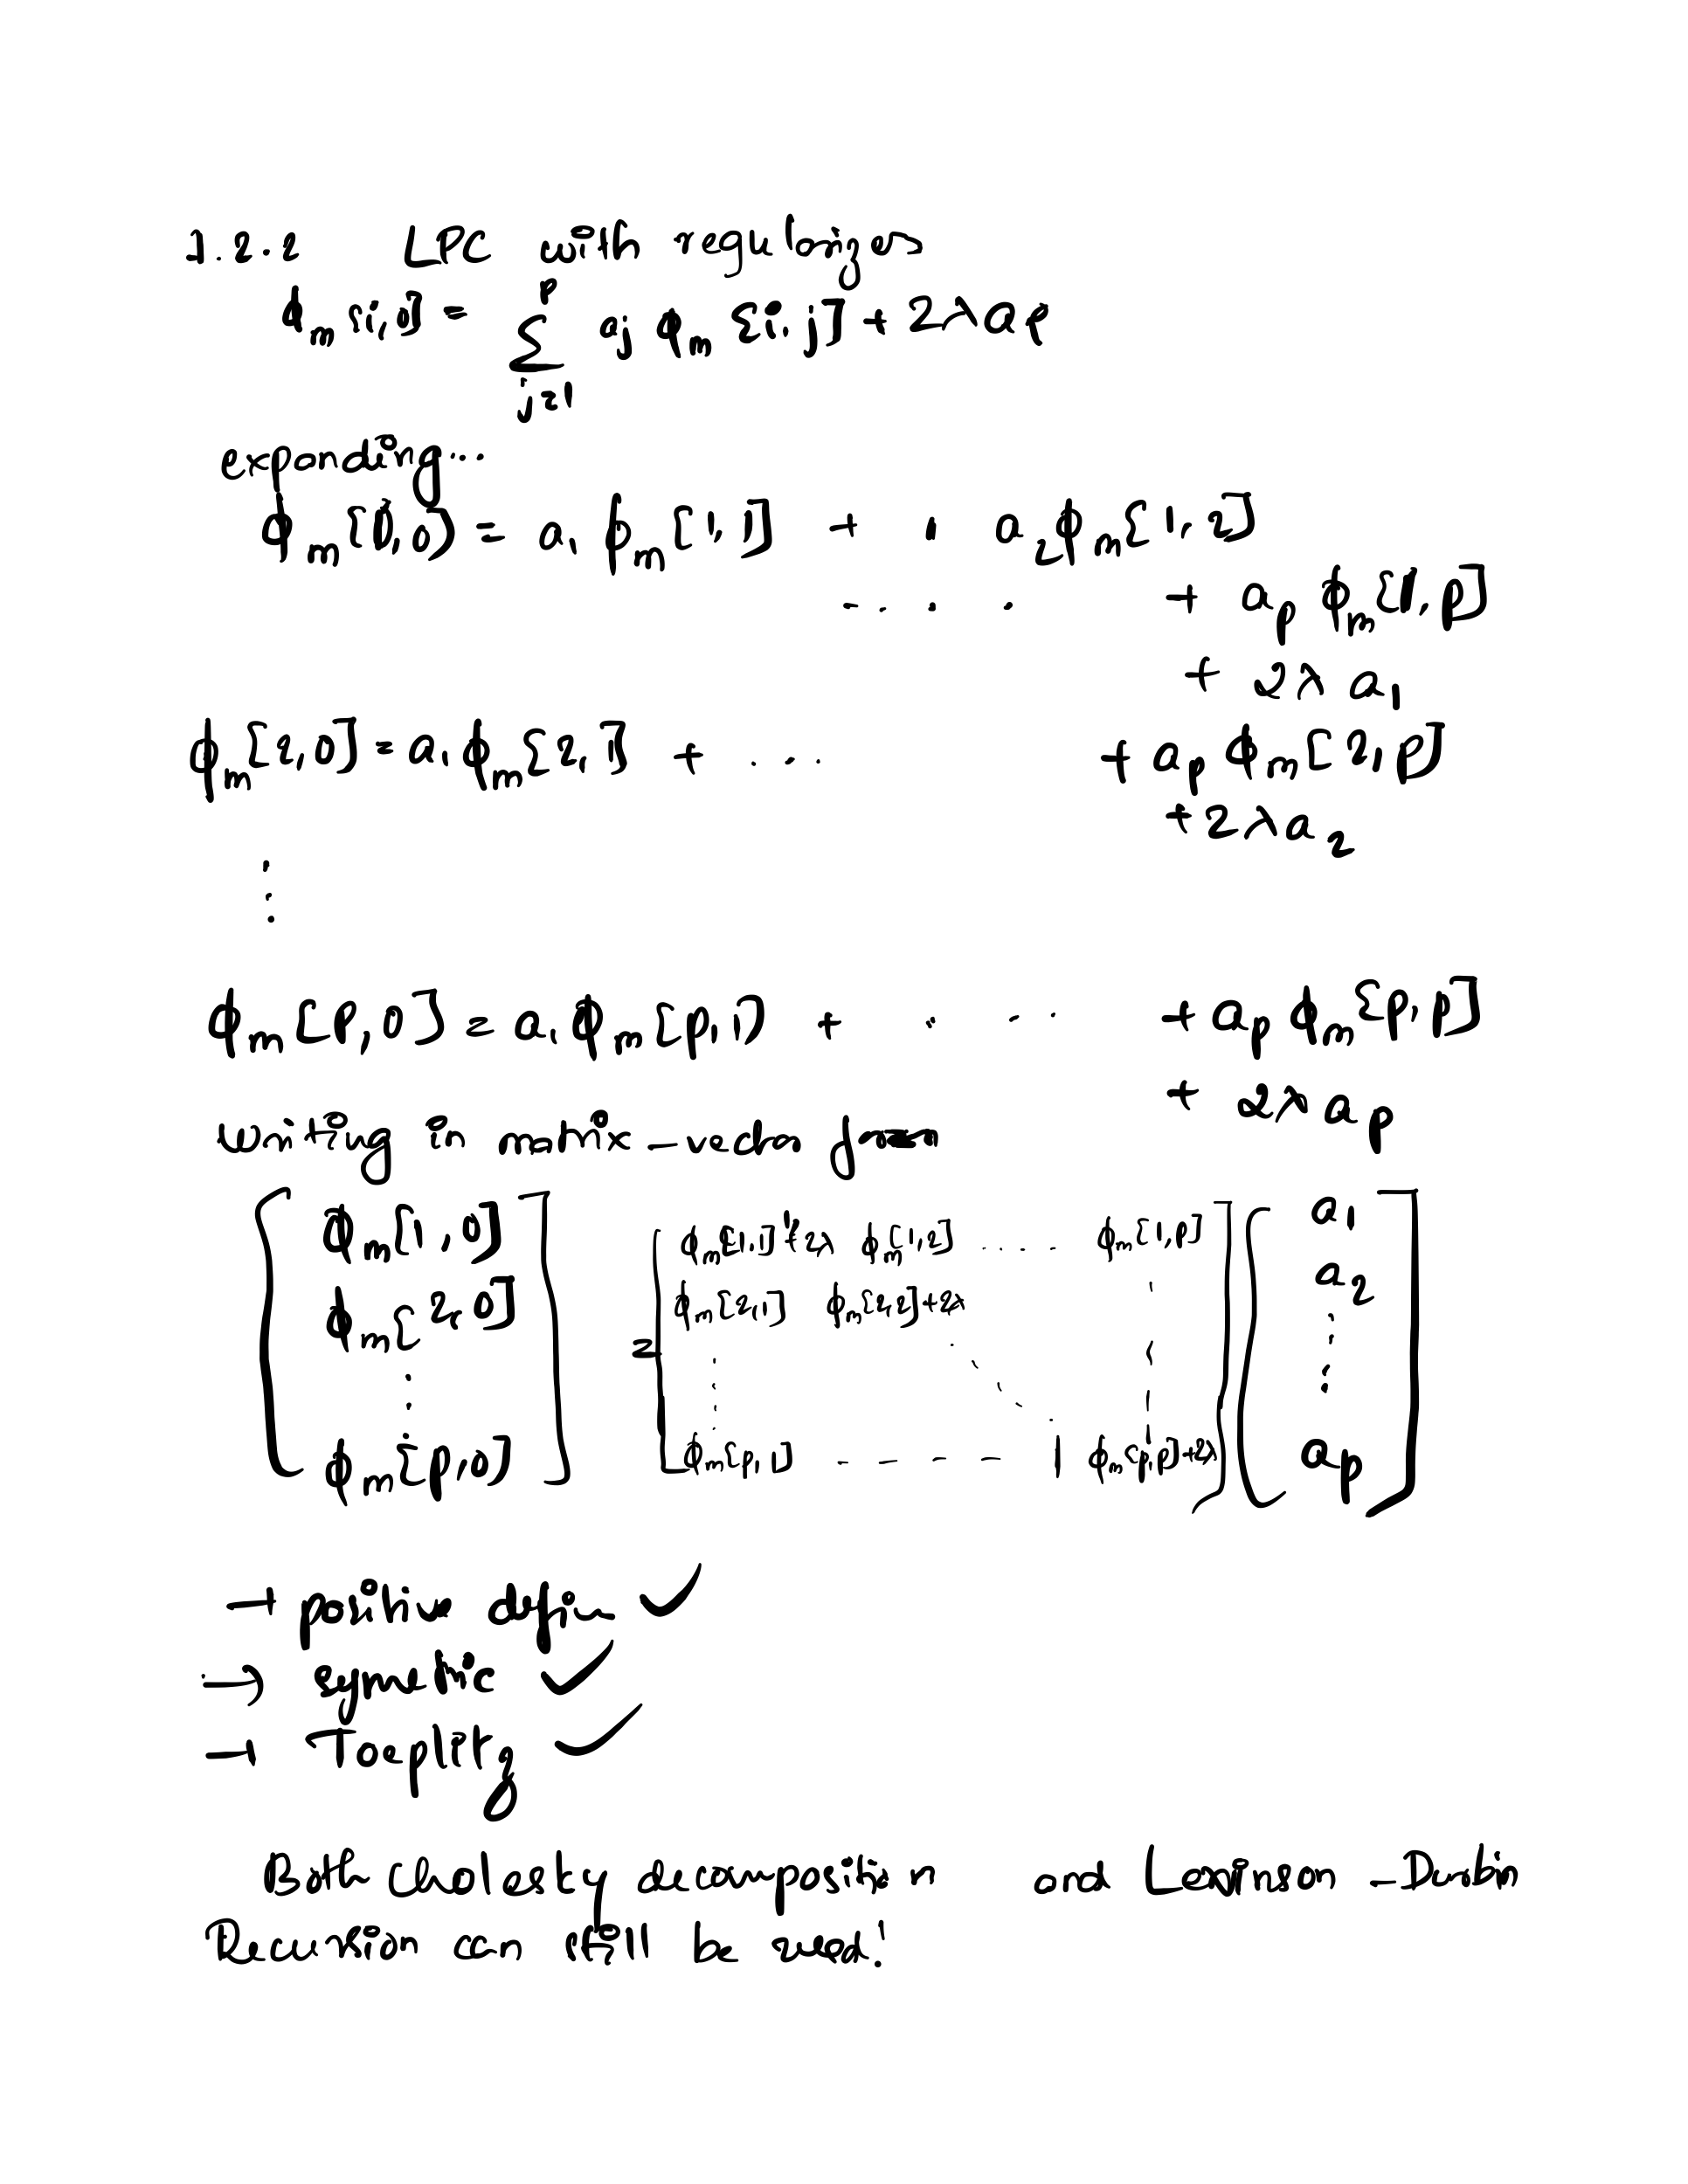 1.2.2 LPC with regularizes
ϕm[i,0] = Σ_{j=1}^{p} aj ϕm[i,j] + 2λap
expanding...
ϕm[1,0] = a1 ϕm[1,1] + a2 ϕm[1,2]
.... + ap ϕm[1,p]
+ 2λ a1
ϕm[2,0] = a1 ϕm[2,1] + ... + ap ϕm[2,p]
+ 2λa2
⋮
ϕm[p,0] = a1 ϕm[p,1] + ... + ap ϕm[p,p]
+ 2λ ap
writing in matrix-vector form
[ϕm[1,0] ϕm[2,0] ⋮ ϕm[p,0]] = [ϕm[1,1]+2λ ϕm[1,2] .... ϕm[1,p]
ϕm[2,1] ϕm[2,2]+2λ
⋮ ⋱ ⋮
ϕm[p,1] - - - - ϕm[p,p]+2λ] [a1 a2 ⋮ ap]
→ positive defin ✓
→ symetric ✓
→ Toeplitz ✓
Both Cholesky decomposition and Levinson-Durbin
Recursion can still be used!